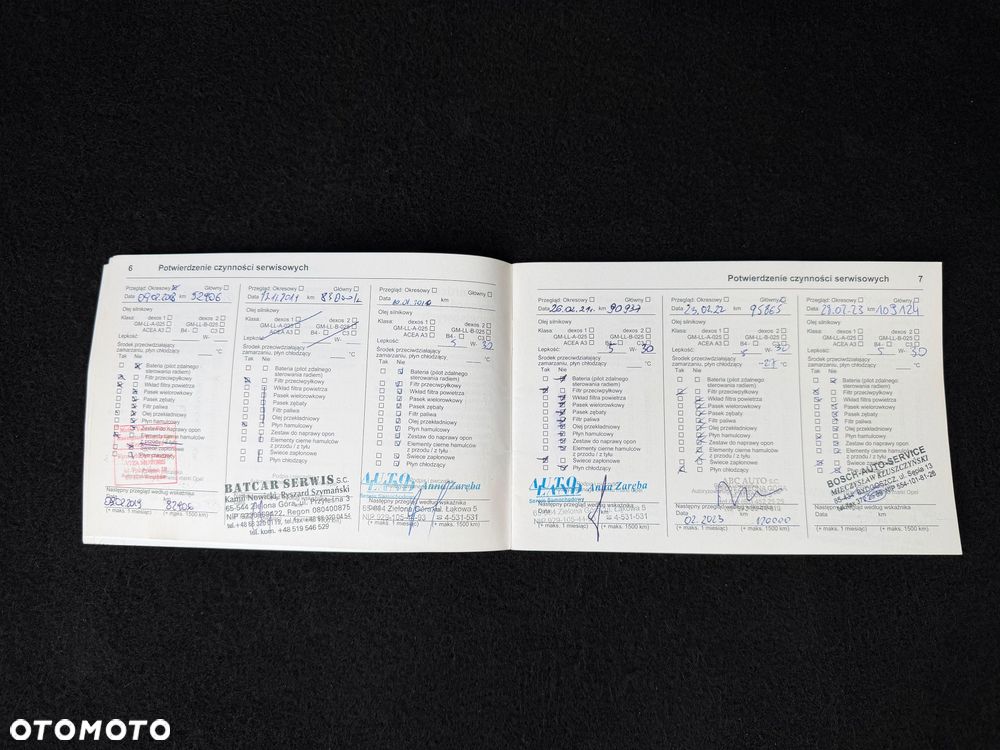 6 Potwierdzenie czynności serwisowych
Przegląd: Okresowy Główny
Data 09.02.2018 km 52906
Olej silnikowy
Klasa: dexos 1 dexos 2
GM-LL-A-025 GM-LL-B-025
ACEA A3 B4- C3
Lepkość: W-
Środek przeciwdziałający
zamarzaniu, płyn chłodzący °C
Tak Nie
Bateria (pilot zdalnego
sterowania radiem)
Filtr przeciwpyłkowy
Wkład filtra powietrza
Pasek wielorowkowy
Pasek zębaty
Filtr paliwa
Olej przekładniowy
Płyn hamulcowy
Zestaw do naprawy opon
Elementy cierne hamulców
z przodu / z tyłu
Świece zapłonowe
Płyn chłodzący
Następny przegląd według wskaźnika
09.02.2019 82906
(+ maks. 1 miesiąc) (+ maks. 1500 km)
Przegląd: Okresowy Główny
Data km
Olej silnikowy
Klasa: dexos 1 dexos 2
GM-LL-A-025 GM-LL-B-025
ACEA A3 B4- C3
Lepkość: W-
Środek przeciwdziałający
zamarzaniu, płyn chłodzący °C
Tak Nie
Bateria (pilot zdalnego
sterowania radiem)
Filtr przeciwpyłkowy
Wkład filtra powietrza
Pasek wielorowkowy
Pasek zębaty
Filtr paliwa
Olej przekładniowy
Płyn hamulcowy
Zestaw do naprawy opon
Elementy cierne hamulców
z przodu / z tyłu
Świece zapłonowe
Płyn chłodzący
BATCAR SERWIS s.c.
Kamil Nowicki, Ryszard Szymański
65-544 Zielona Góra, ul. Przylesna 3
Regon 080400875
tel. kom. +48 519 546 529
Przegląd: Okresowy Główny
Data km
Olej silnikowy
Klasa: dexos 1 dexos 2
GM-LL-A-025 GM-LL-B-025
ACEA A3 B4- C3
Lepkość: 5 W- 30
Środek przeciwdziałający
zamarzaniu, płyn chłodzący °C
Tak Nie
Bateria (pilot zdalnego
sterowania radiem)
Filtr przeciwpyłkowy
Wkład filtra powietrza
Pasek wielorowkowy
Pasek zębaty
Filtr paliwa
Olej przekładniowy
Płyn hamulcowy
Zestaw do naprawy opon
Elementy cierne hamulców
z przodu / z tyłu
Świece zapłonowe
Płyn chłodzący
AUTO LAND Anna Zaręba
Serwis Samochodowy
Zielona Góra, ul. Łąkowa 5
(+ maks. 1 miesiąc) (+ maks. 1500 km)
Potwierdzenie czynności serwisowych 7
Przegląd: Okresowy Główny
Data 26.02.21 km 90937
Olej silnikowy
Klasa: dexos 1 dexos 2
GM-LL-A-025 GM-LL-B-025
ACEA A3 B4- C3
Lepkość: 5 W- 30
Środek przeciwdziałający
zamarzaniu, płyn chłodzący °C
Tak Nie
Bateria (pilot zdalnego
sterowania radiem)
Filtr przeciwpyłkowy
Wkład filtra powietrza
Pasek wielorowkowy
Pasek zębaty
Filtr paliwa
Olej przekładniowy
Płyn hamulcowy
Zestaw do naprawy opon
Elementy cierne hamulców
z przodu / z tyłu
Świece zapłonowe
Płyn chłodzący
AUTO LAND Anna Zaręba
Serwis Samochodowy
(+ maks. 1 miesiąc) (+ maks. 1500 km)
Przegląd: Okresowy Główny
Data 23.02.22 km 95865
Olej silnikowy
Klasa: dexos 1 dexos 2
GM-LL-A-025 GM-LL-B-025
ACEA A3 B4- C3
Lepkość: 5 W- 30
Środek przeciwdziałający
zamarzaniu, płyn chłodzący -27 °C
Tak Nie
Bateria (pilot zdalnego
sterowania radiem)
Filtr przeciwpyłkowy
Wkład filtra powietrza
Pasek wielorowkowy
Pasek zębaty
Filtr paliwa
Olej przekładniowy
Płyn hamulcowy
Zestaw do naprawy opon
Elementy cierne hamulców
z przodu / z tyłu
Świece zapłonowe
Płyn chłodzący
ABC AUTO s.c.
Następny przegląd według wskaźnika
Data km
02.2023 120000
(+ maks. 1 miesiąc) (+ maks. 1500 km)
Przegląd: Okresowy Główny
Data km 109124
Olej silnikowy
Klasa: dexos 1 dexos 2
GM-LL-A-025 GM-LL-B-025
ACEA A3 B4- C3
Lepkość: 5 W- 30
Środek przeciwdziałający
zamarzaniu, płyn chłodzący °C
Tak Nie
Bateria (pilot zdalnego
sterowania radiem)
Filtr przeciwpyłkowy
Wkład filtra powietrza
Pasek wielorowkowy
Pasek zębaty
Filtr paliwa
Olej przekładniowy
Płyn hamulcowy
Zestaw do naprawy opon
Elementy cierne hamulców
z przodu / z tyłu
Świece zapłonowe
Płyn chłodzący
BOSCH AUTO-SERVICE
MIECZYSŁAW KRUSZCZYŃSKI
BYDGOSZCZ, ul. Sępia 13
Następny przegląd według wskaźnika
Data km
(+ maks. 1 miesiąc) (+ maks. 1500 km)
OTOMOTO